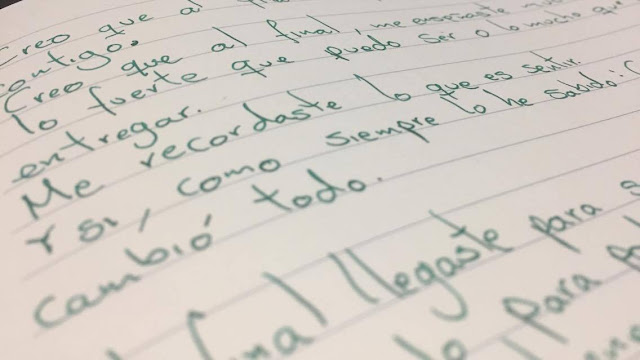 Creo que al
contigo.
Creo que al final, me enseñaste
lo fuerte que puedo ser o lo mucho que
entregar.
Me recordaste lo que es sentir.
Y si, como siempre lo he sabido:
cambió todo.
final llegaste para
lo para